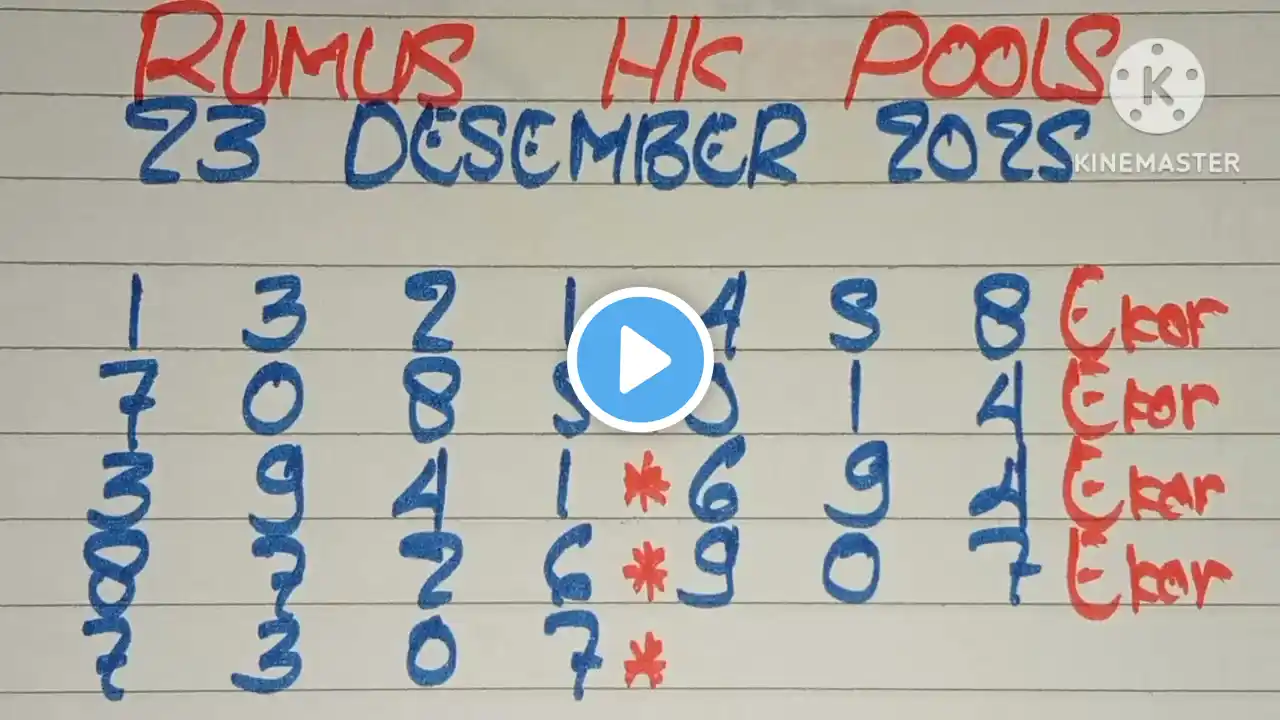 RUMUS HK POOLS
23 DESEMBER 2025
KINEMASTER
1 3 2 1 4 5 8 Ekor
7 0 8 5 0 1 4 Ekor
3 9 4 1 * 6 9 4 Ekor
0 7 2 6 * 9 0 7 Ekor
7 3 0 7 *